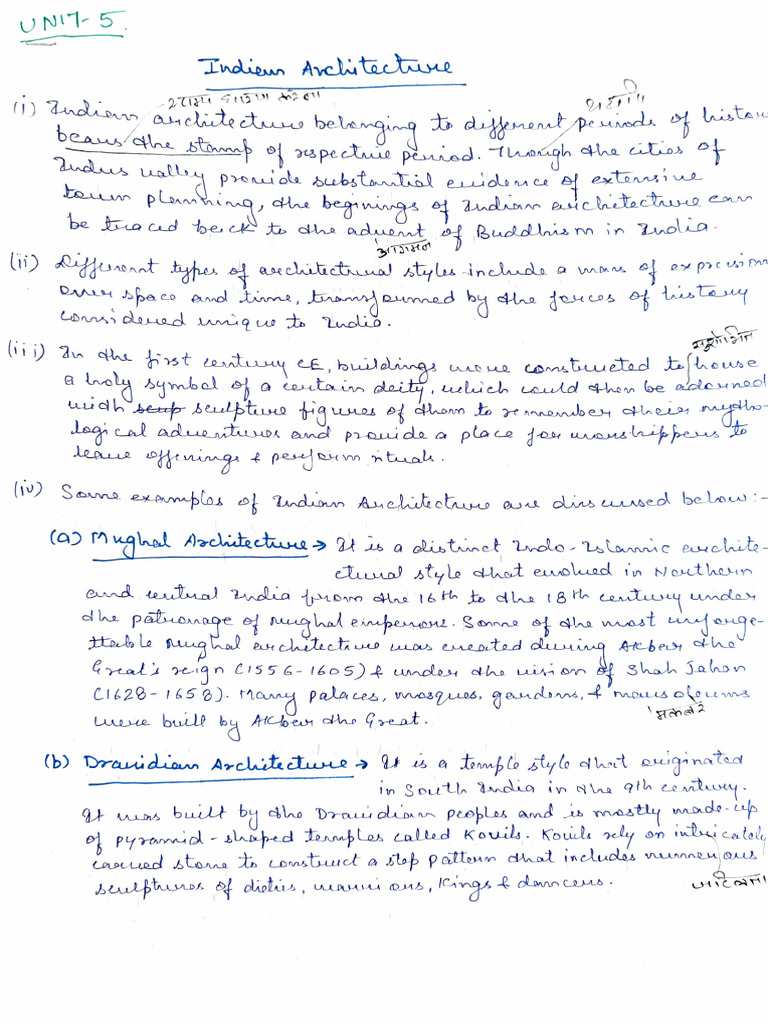 UNIT-5.
Indian Architecture
(i) Indian architecture belonging to different periods of history
bears the stamp of respective period. Though the cities of
Indus valley provide substantial evidence of extensive
town planning, the beginings of Indian architecture can
be traced back to the advent of Buddhism in India.
आगमन
(ii) Different types of architectural styles include a mass of expression
over space and time, transformed by the forces of history
considered unique to India.
सुशोभित
(iii) In the first century CE, buildings were constructed to house
a holy symbol of a certain deity, which could then be adorned
with sculpture figures of them to remember their mytho-
logical adventures and provide a place for worshippers to
leave offerings & perform rituals.
(iv) Some examples of Indian Architecture are discussed below:-
(a) Mughal Architecture → It is a distinct Indo-Islamic archite-
ctural style that evolved in Northern
and central India from the 16th to the 18th century under
the patronage of Mughal emperors. Some of the most unforge-
ttable Mughal architecture was created during Akbar the
Great's reign (1556-1605) & under the vision of Shah Jahan
(1628-1658). Many palaces, mosques, gardens, & mausoleums
were built by Akbar the Great.
मकबरे
(b) Dravidian Architecture → It is a temple style that originated
in South India in the 9th century.
It was built by the Dravidian peoples and is mostly made-up
of pyramid-shaped temples called Kovils. Kovils rely on intricately
carved stone to construct a step pattern that includes numerous
sculptures of dieties, warriors, kings & dancers.